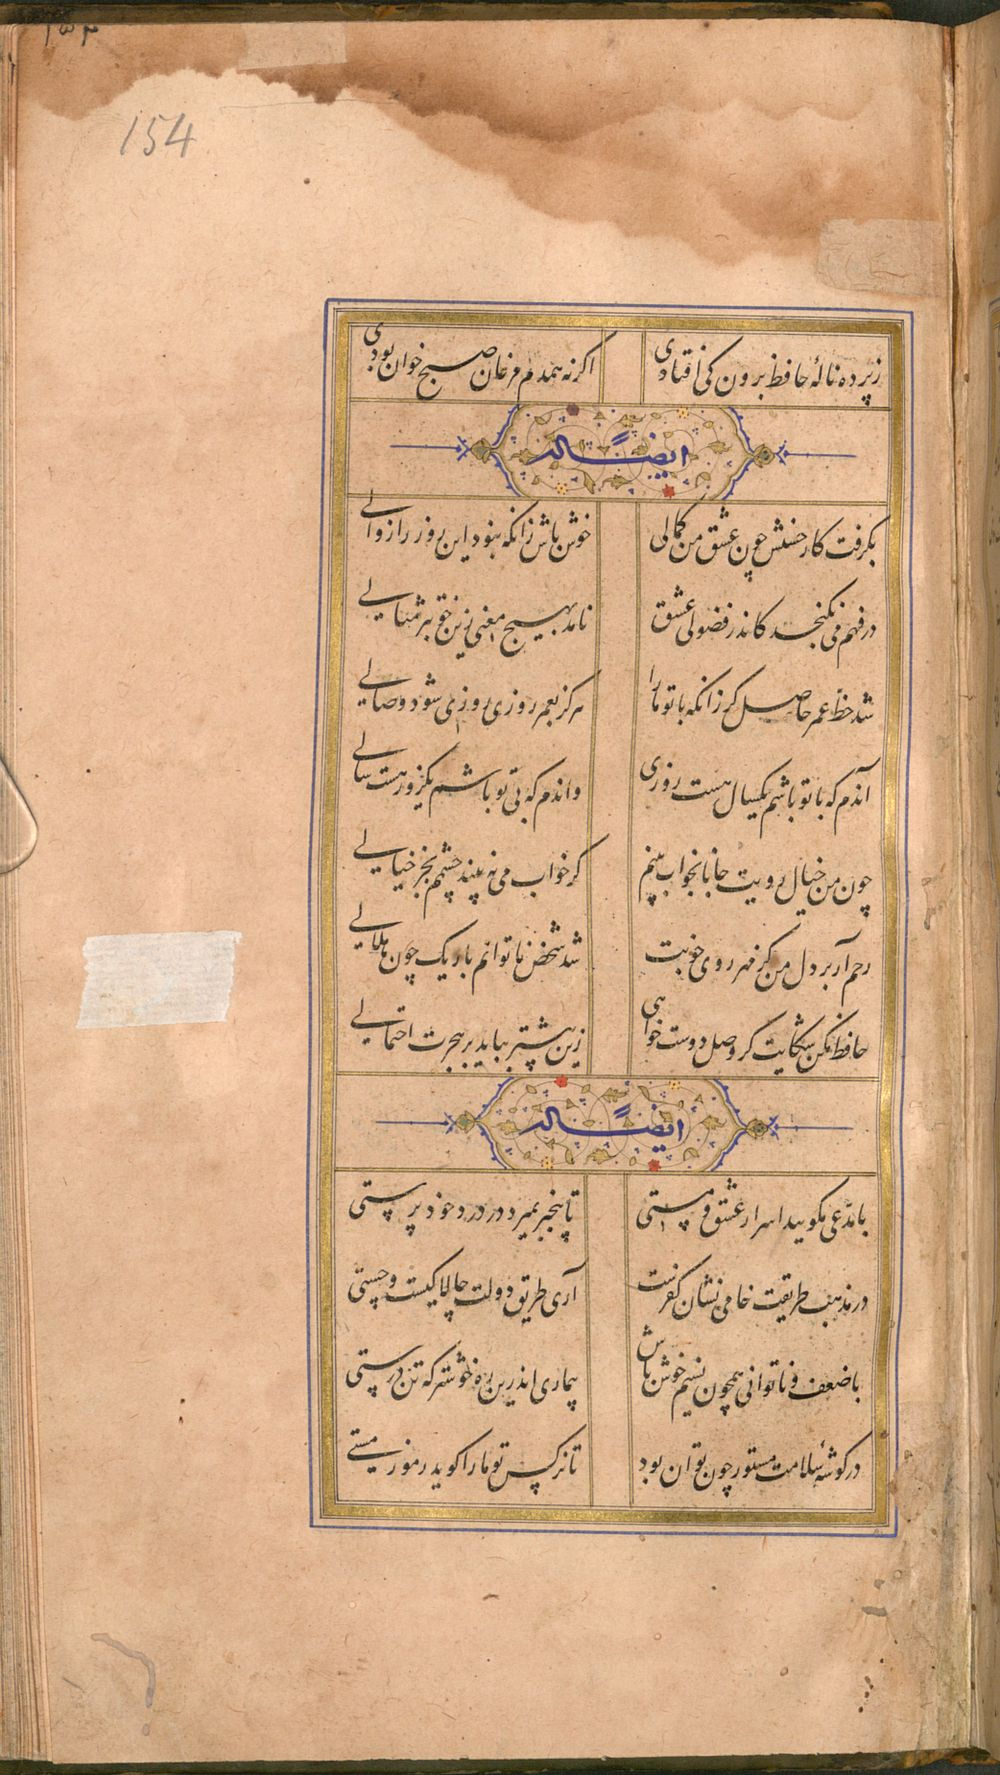 ۱۵۴
154
ز پرده نالهٔ حافظ برون کی افتادی
اگر نه همدم مرغان صبح خوان بودی
ایضاً له
بگرفت کار حسنش چون عشق من کمالی
خوش باش زانکه نبود این روز را زوالی
در فهم می نگنجد کاندر فضولی عشق
ناید بهیچ معنی زین خوبتر مثالی
شد حظ عمر حاصل گر زانکه با تو ما را
هرگز بعمر روزی روزی شود وصالی
آندم که با تو باشم یکسال هست روزی
واندم که بی تو باشم یکروز هست سالی
چون من خیال رویت جانا بخواب بینم
کز خواب می نه بیند چشمم بجز خیالی
رحم آر بر دل من کز مهر روی خوبت
شد شخص ناتوانم باریک چون هلالی
حافظ مکن شکایت گر وصل دوست خواهی
زین بیشتر بباید بر هجرت احتمالی
ایضاً له
با مدعی مگویید اسرار عشق و مستی
تا بیخبر بمیرد در درد خود پرستی
در مذهب طریقت خامی نشان کفرست
آری طریق دولت چالاکیست و چستی
با ضعف و ناتوانی همچون نسیم خوش باش
بیماری اندرین ره خوشتر که تن درستی
در گوشهٔ سلامت مستور چون توان بود
تا نرگس تو ما را گوید رموز مستی